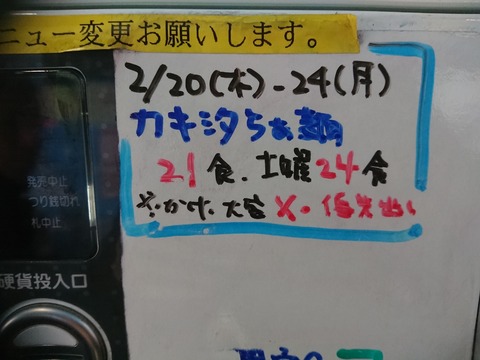 ニュー変更お願いします。
2/20(木)-24(月)
カキ汐らぁ麺
21食.土曜24食
※.かけ.大盛×.
発売中止
つり銭切れ
札中止
硬貨投入口